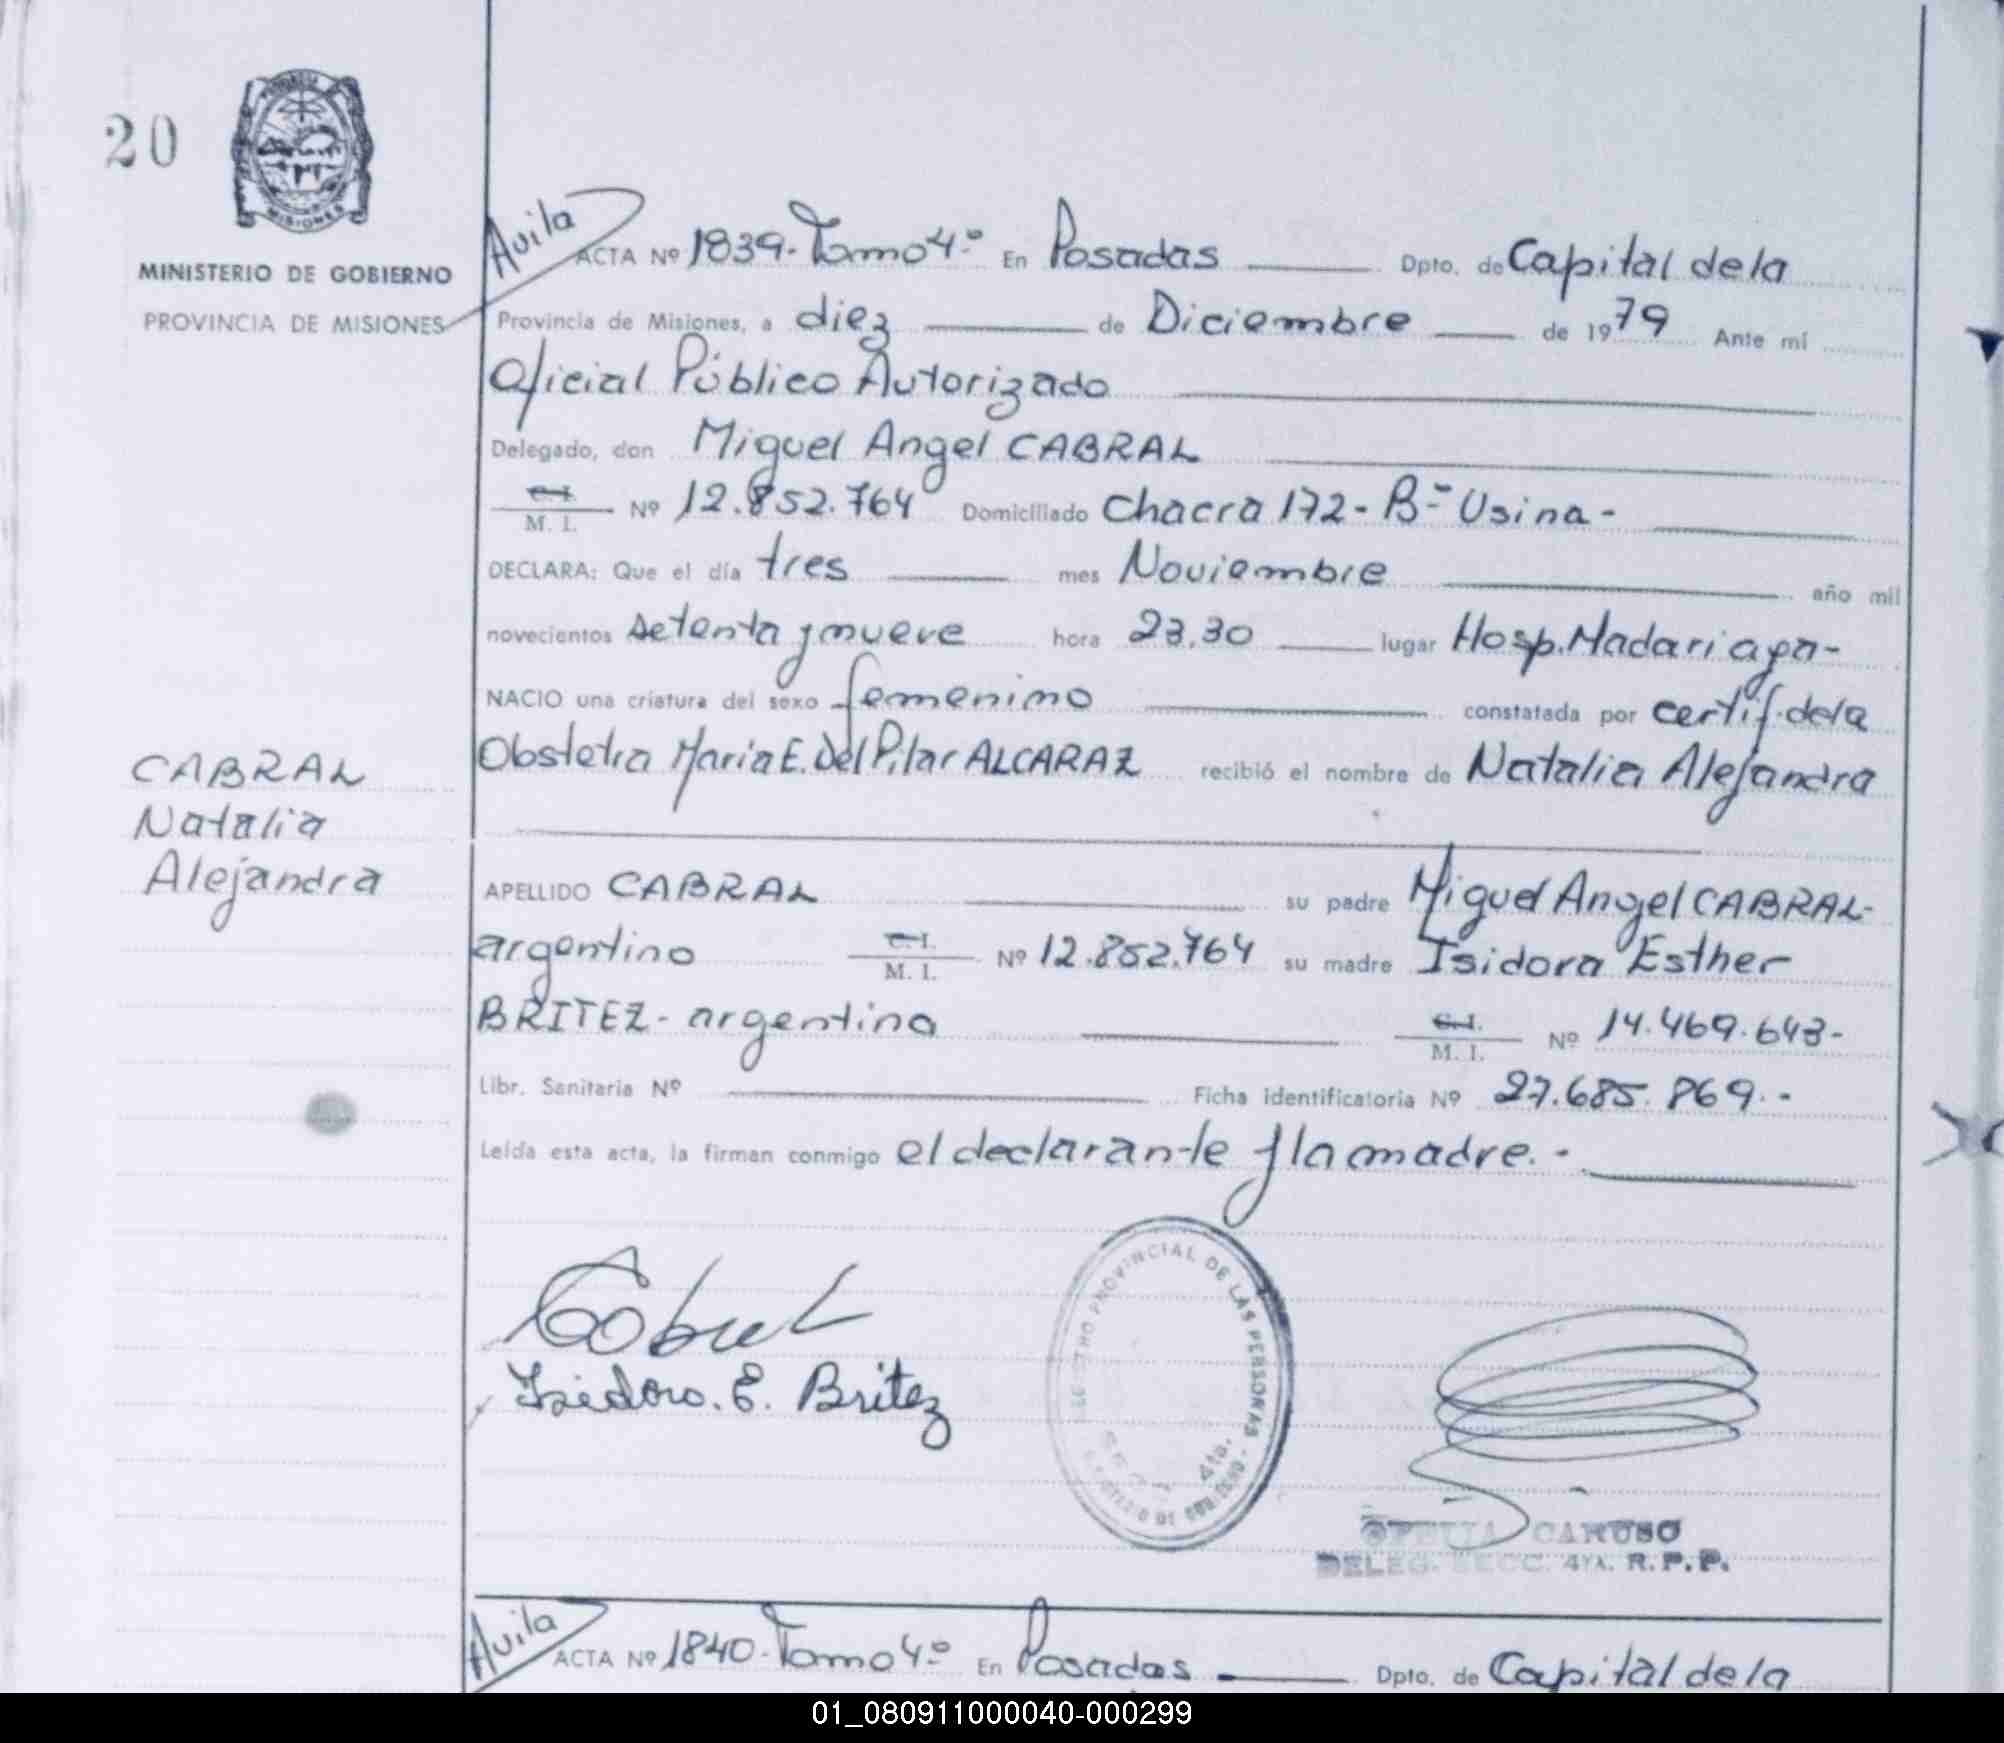 20
PROVINCIA
MISIONES
MINISTERIO DE GOBIERNO
PROVINCIA DE MISIONES
Avila
ACTA Nº 1839-Tomo 4º En Posadas Dpto. de Capital de la
Provincia de Misiones, a diez de Diciembre de 1979 Ante mí
Oficial Público Autorizado
Delegado, don Miguel Angel CABRAL
C.I. / M. I. Nº 12.852.764 Domiciliado Chacra 172- Bº Usina-
DECLARA: Que el día tres mes Noviembre año mil
novecientos setenta y nueve hora 23.30 lugar Hosp. Madariaga-
NACIO una criatura del sexo femenino constatada por certif. de la
Obstetra Maria E. Del Pilar ALCARAZ recibió el nombre de Natalia Alejandra
CABRAL
Natalia
Alejandra
APELLIDO CABRAL su padre Miguel Angel CABRAL-
argentino C.I. / M. I. Nº 12.852.764 su madre Isidora Esther
BRITEZ- argentina C.I. / M. I. Nº 14.469.643-
Libr. Sanitaria Nº Ficha identificatoria Nº 27.685.869.-
Leída esta acta, la firman conmigo el declarante y la madre.-
Cabral
Isidora. E. Britez
REGISTRO PROVINCIAL DE LAS PERSONAS -
SECC. 4ta.
MINISTERIO DE GOBIERNO
OFELIA CARUSO
DELEG. SECC. 4TA. R.P.P.
Avila
ACTA Nº 1840-Tomo 4º En Posadas Dpto. de Capital de la
01_080911000040-000299